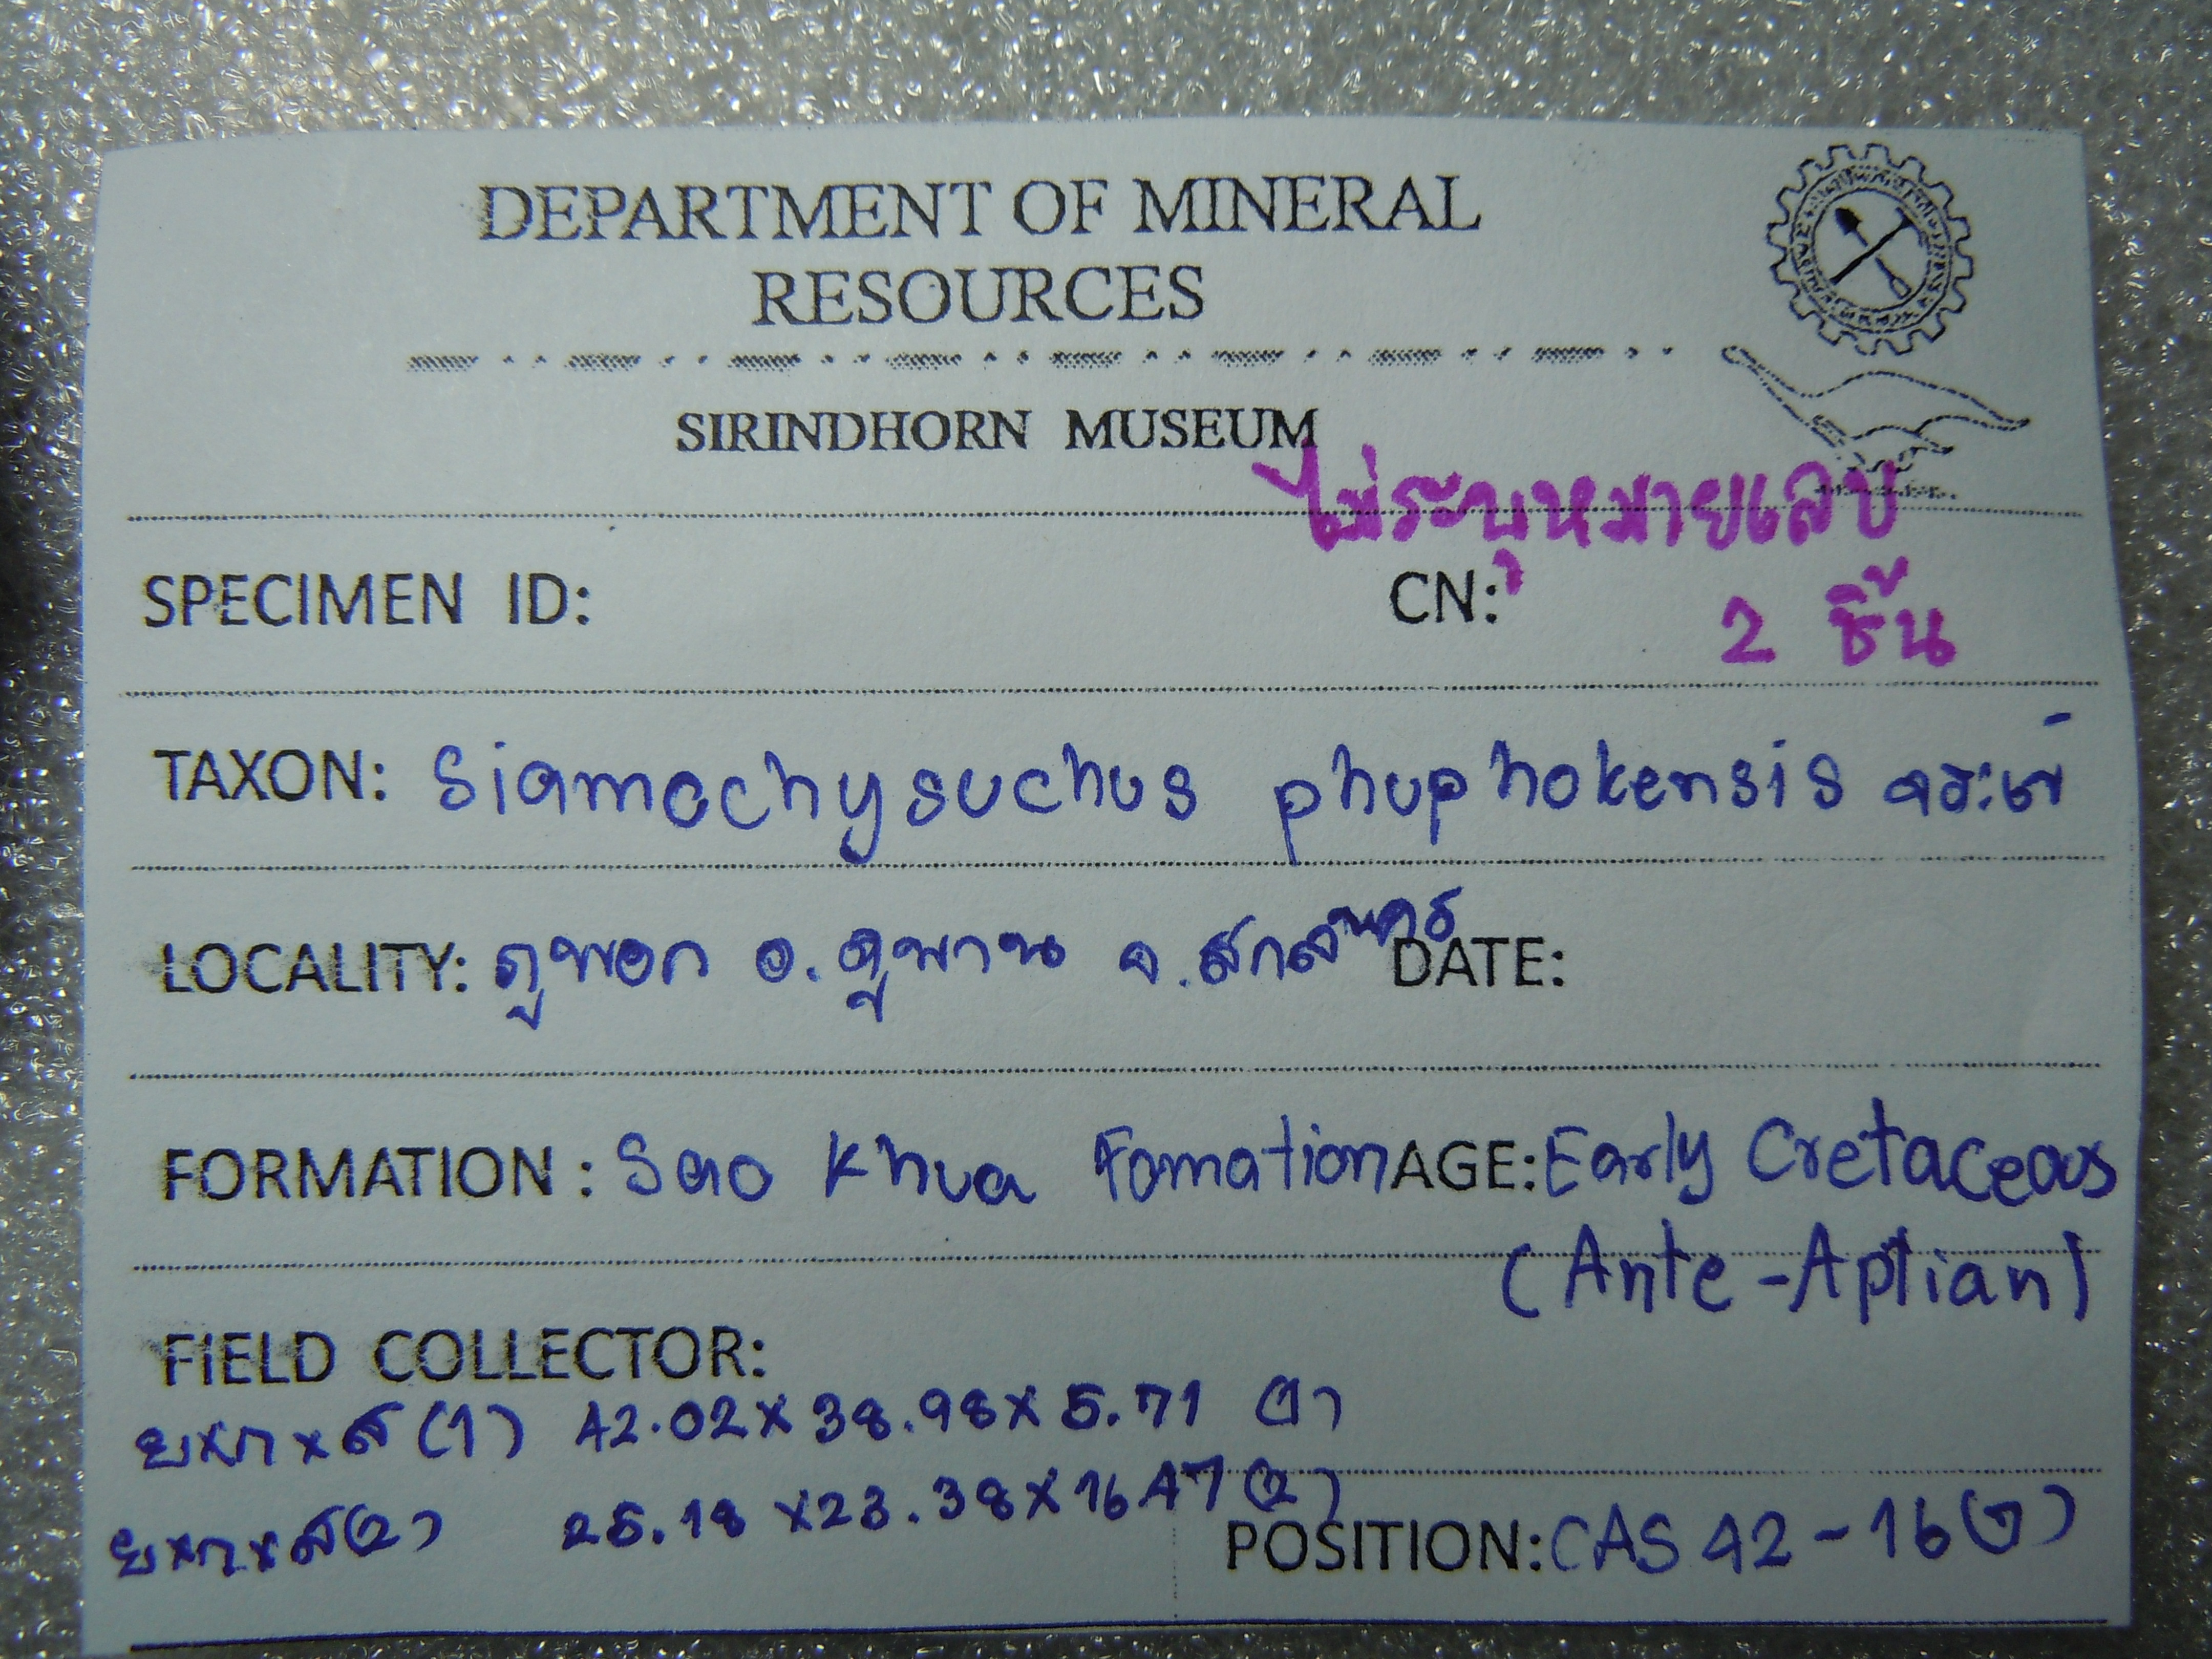 DEPARTMENT OF MINERAL
RESOURCES
SIRINDHORN MUSEUM
ไม่ระบุหมายเลข
SPECIMEN ID: CN:
2 ชิ้น
TAXON: Siamochysuchus phuphokensis จระเข้
LOCALITY: ภูพอก อ.ภูพาน จ.สกลนคร DATE:
FORMATION : Sao Khua Fomation AGE: Early Cretaceous
(Ante-Aptian)
FIELD COLLECTOR:
ยxกxส (1) 42.02x38.98x5.71 (1)
ยxกxส(2) 25.18x23.38x16.47(2)
POSITION: CAS 42-16(7)